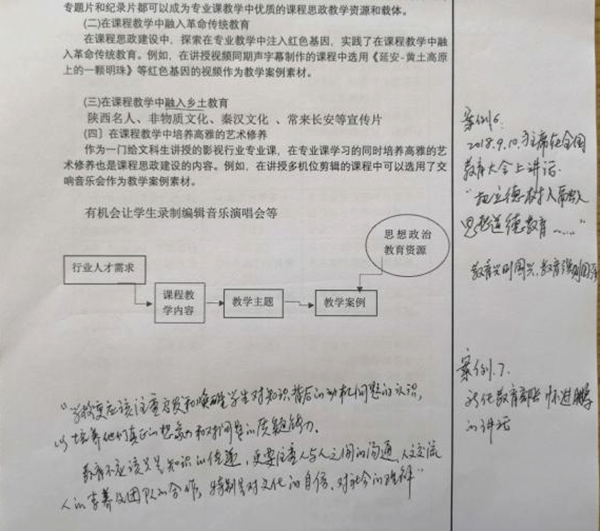 专题片和纪录片都可以成为专业课教学中优质的课程思政教学资源和载体。
(二)在课程教学中融入革命传统教育
在课程思政建设中，探索在专业教学中注入红色基因，实践了在课程教学中融
入革命传统教育。例如，在讲授视频同期声字幕制作的课程中选用《延安-黄土高原
上的一颗明珠》等红色基因的视频作为教学案例素材。
(三)在课程教学中融入乡土教育
陕西名人、非物质文化、秦汉文化 、常来长安等宣传片
(四］在课程教学中培养高雅的艺术修养
作为一门给文科生讲授的影视行业专业课，在专业课学习的同时培养高雅的艺
术修养也是课程思政建设的内容。例如，在讲授多机位剪辑的课程中可以选用了交
响音乐会作为教学案例素材。
有机会让学生录制编辑音乐演唱会等
思想政治
教育资源
行业人才需求
课程教
学内容
教学主题
教学案例
案例6.
2018.9.10.主席在全国
教育大会上讲话
"把立德树人融入
思想道德教育……"
教育兴则国兴,教育强则国强
案例.7.
教育部
的讲话
"学校更应该注重启发和唤醒学生对知识背后的动机问题的认识,
以培养他们真正的想象力和对问题的质疑能力.
教育不应该只是知识的传递,更要注重人与人之间的沟通,人文交流
人的素养及团队的合作,特别是对文化的自信、对社会的理解"